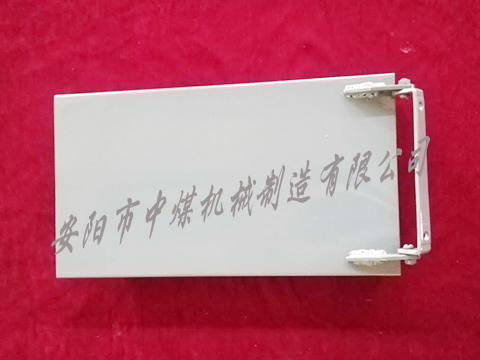 安阳市中煤机械制造有限公司